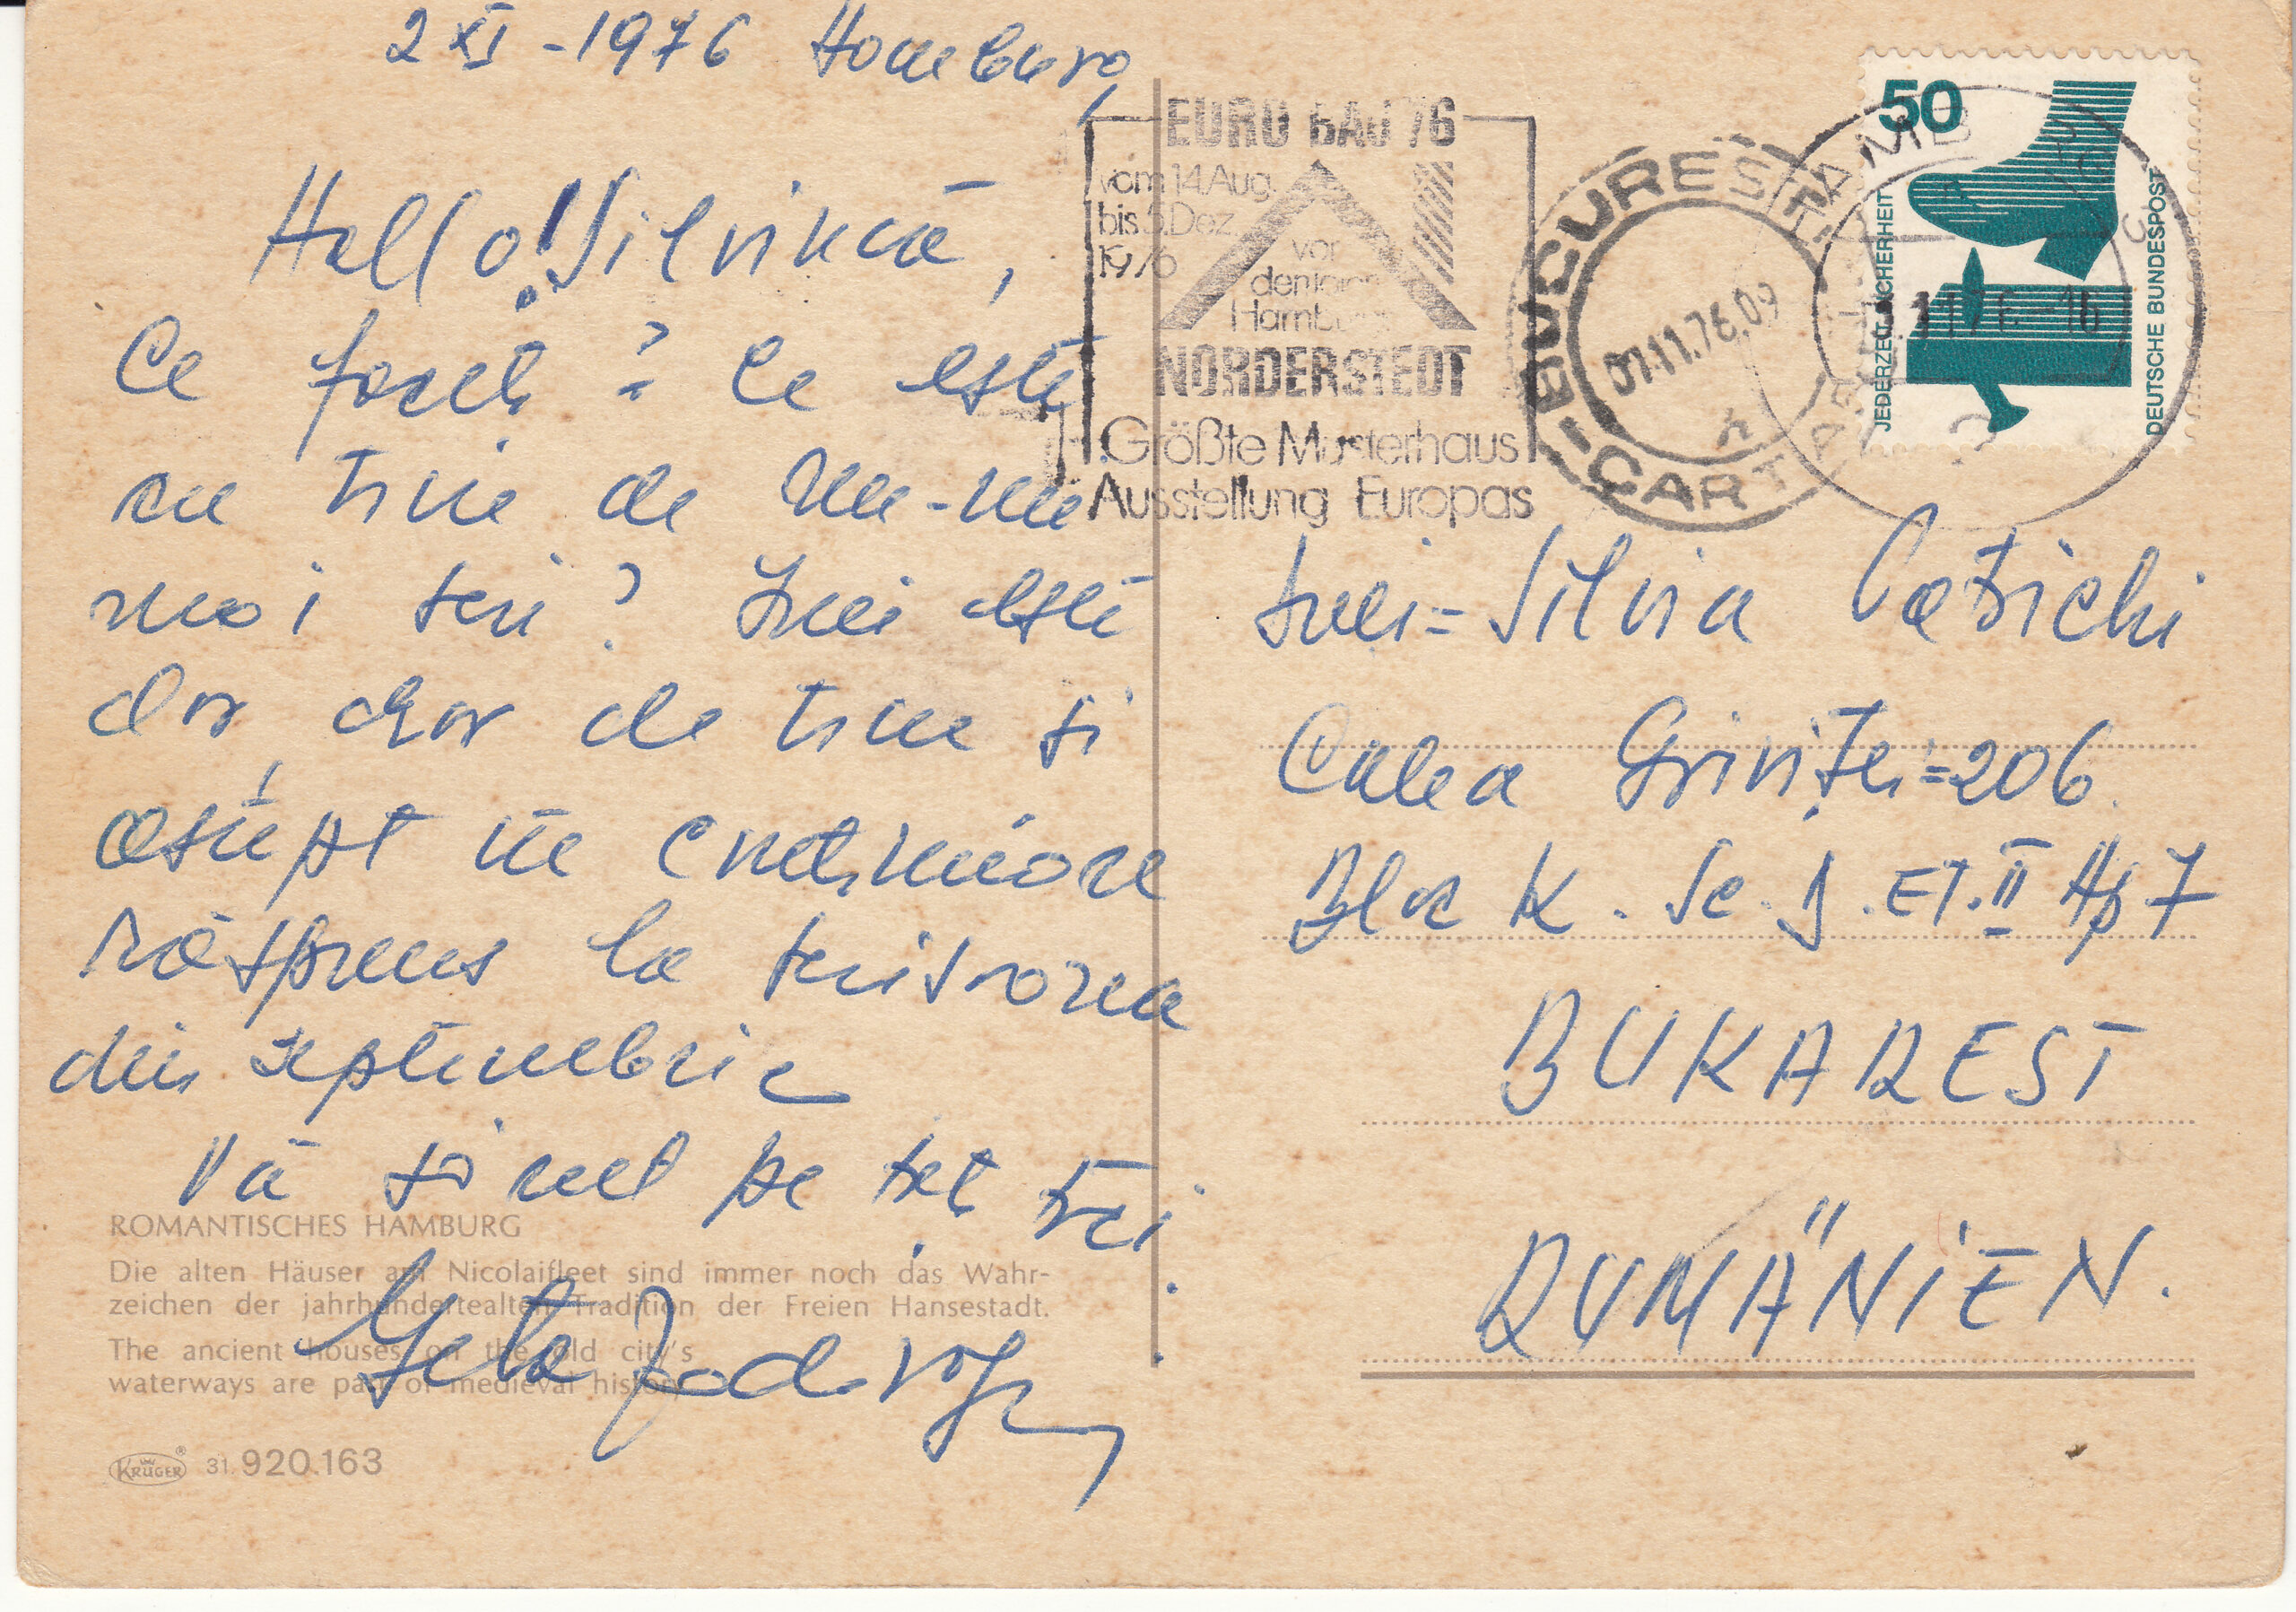 2 XI -1976 Hamburg
Hallo! Silvincă,
Ce faceți? Ce este
cu tine de nu-mi
mai scrii? Îmi este
dor, dor de tine și
aștept cu nerăbdare
răspuns la scrisoarea
din septembrie
Vă sărut pe toți trei.
Geta
EURO BAU 76
vom 14.Aug.
bis 5.Dez.
1976
vor
den Toren
Hamburgs
NORDERSTEDT
Größte Musterhaus
Ausstellung Europas
BUCUREȘTI
07.11.76.09
BUC-CARTARE
HAMBURG
50
JEDERZEIT SICHERHEIT
DEUTSCHE BUNDESPOST
Silvia Catrichi
Calea Griviței=206
Bloc K. Sc. J. ET. II Ap 7
BUKAREST
RUMÄNIEN.
ROMANTISCHES HAMBURG
Die alten Häuser am Nicolaifleet sind immer noch das Wahr-
zeichen der jahrhundertealten Tradition der Freien Hansestadt.
The ancient houses on the old city's
waterways are part of medieval history.
KRÜGER® 31 920.163